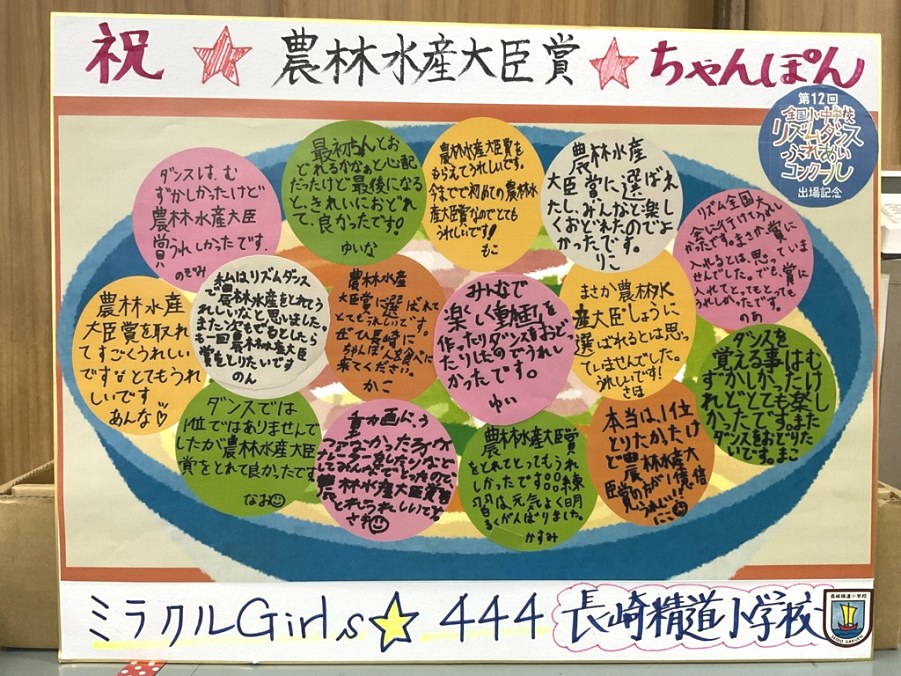 祝 ☆ 農林水産大臣賞 ☆ ちゃんぽん
第12回
全国小・中学校
リズムダンス
ふれあい
コンクール
出場記念
ダンスは、む
ずかしかったけど
農林水産大臣
賞うれしかったです。
のぞみ
最初ちゃんとお
どれるかなぁと心配
だったけど最後になる
と、きれいにおどれ
て、良かったです!
ゆいな
農林水産大臣賞を
もらえてうれしいです。
今までで初めての農林水
産大臣賞なのでとても
うれしいです!
もこ
農林水産
大臣賞に選ばれ
たし、みんなと楽し
くおどれたのでよ
かったです。
りこ
リズム全国大
会に行けてうれし
かったです。まさか賞に
入れるとは、思っていま
せんでした。でも、賞に
入れてとってもとっても
うれしかったです。
のあ
農林水産
大臣賞を取れ
てすごくうれしい
ですとてもうれ
しいです
あんな♡
私はリズムダンス
で農林水産をとれてう
れしいなと思いました。
また次もでるとしたら
も一回農林水産大臣
賞をとりたいです
のん
農林水産
大臣賞に選ばれて
とてもうれしいです。
ぜひ長崎に
ちゃんぽんを食べに
来てください。
かこ
みんなで
楽しく動画を
作ったりダンスをおど
ったりしたのでうれし
かったです。
ゆい
まさか農林水
産大臣しょうに
選ばれるとは思っ
ていませんでした。
うれしいです!
さほ
ダンスを
覚える事はむ
ずかしかったけ
れどとても楽し
かったです。また
ダンスをおどりた
いです。まこ
ダンスでは
1位ではありませんで
したが農林水産大臣
賞をとれて良かったです
なお
動画に、う
つらなかったろう
農林水産大臣賞
とれうれしいです
さわ
農林水産大臣賞
をとれてとってもうれ
しかったです。練
習は元気よく明
るくがんばりました。
かすみ
本当は、1位
とりたかったけ
ど農林水産大
臣賞のほうが1億倍
うれしい!!
にこ
ミラクルGirls☆444 長崎精道小学校
長崎精道小学校